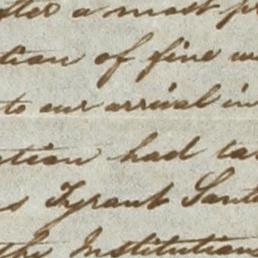 ster a most pr
tion of fine w
to our arrival in
ution had ta
s Tyrant Santa
the Institutions